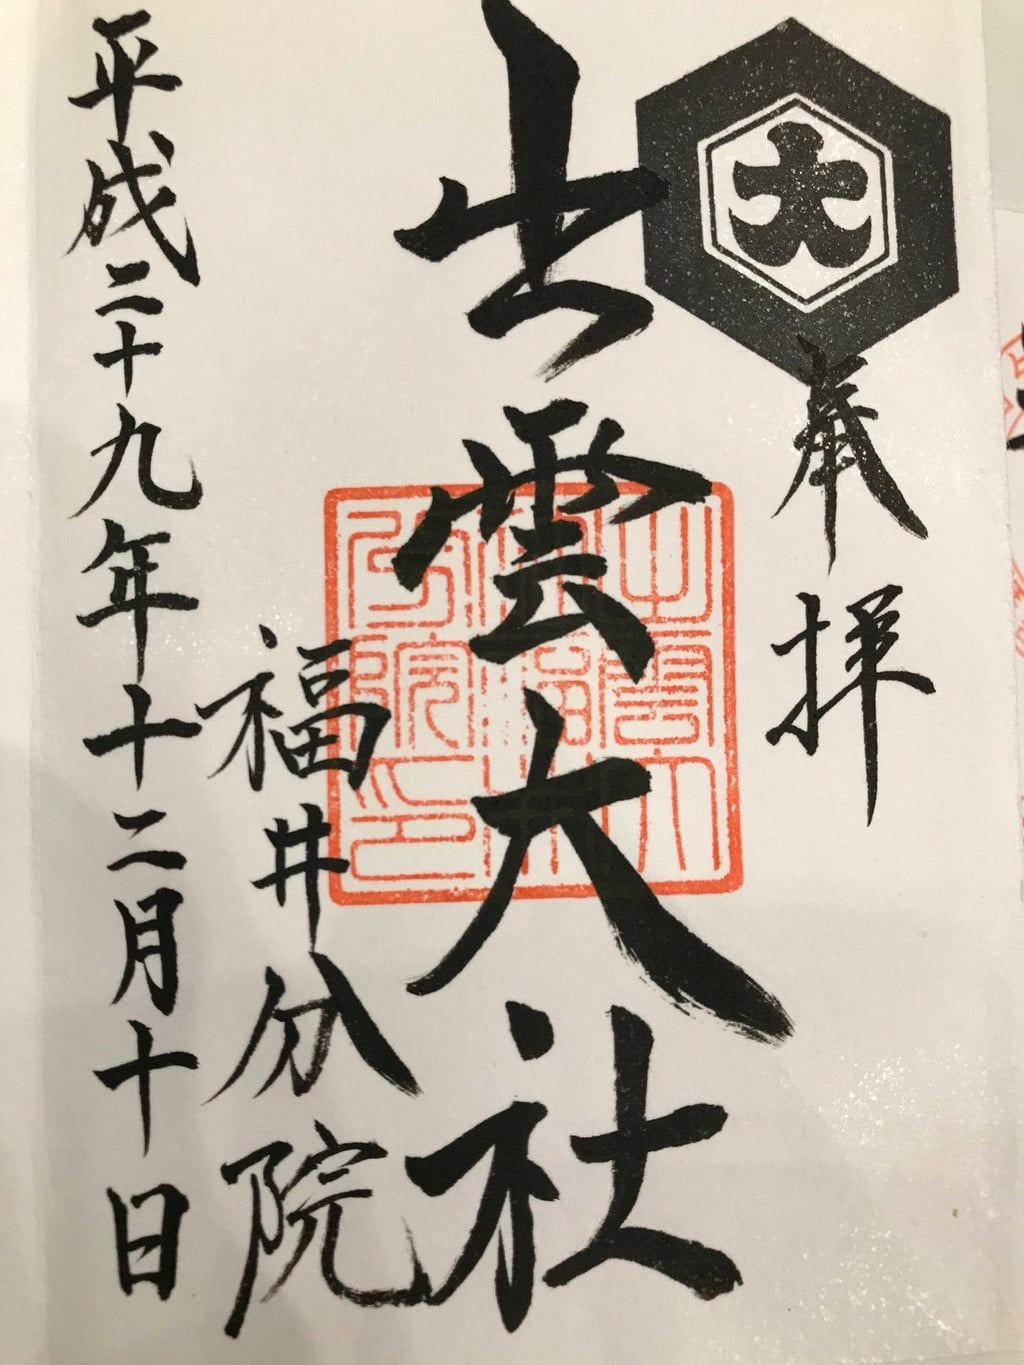 大
奉拝
出雲大社
福井分院
平成二十九年十二月十日
出雲大
社福井
分院印